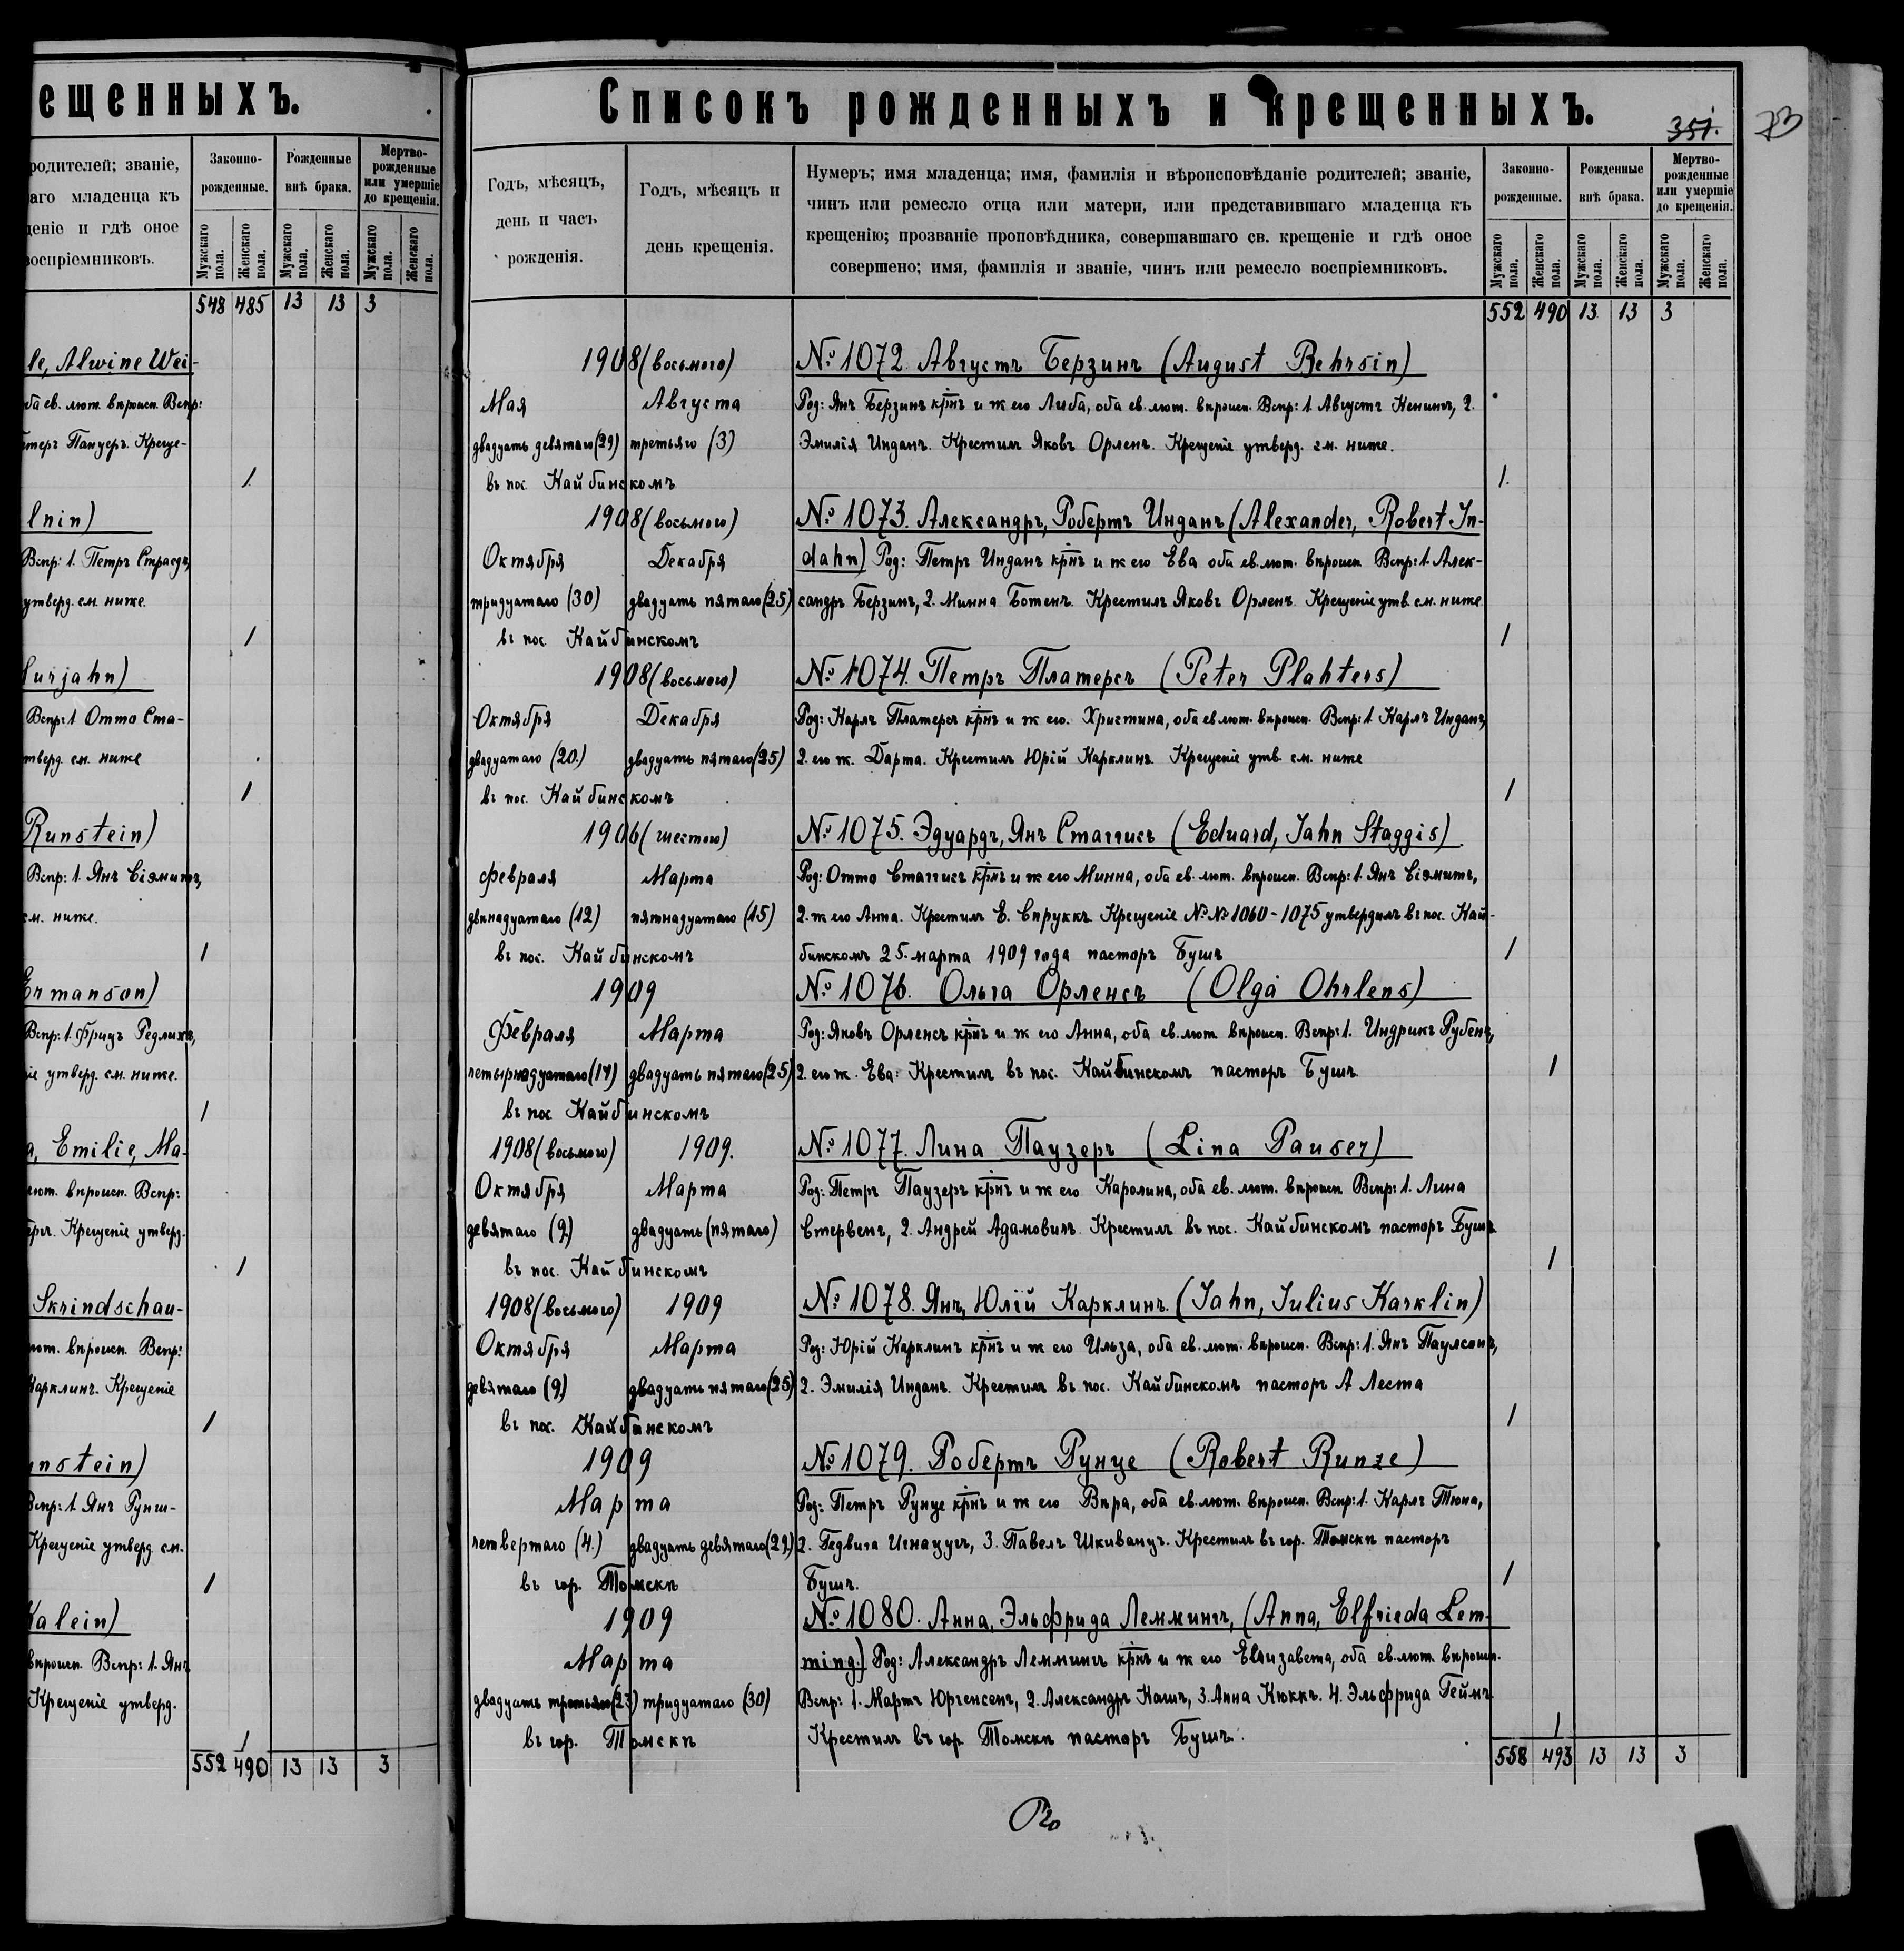 ещенныхъ.
родителей; званіе,
аго младенца къ
деніе и гдѣ оное
воспріемниковъ.
Законно-
рожденные.
Рожденные
внѣ брака.
Мертво-
рожденные
или умершіе
до крещенія.
Мужскаго пола.
Женскаго пола.
Мужскаго пола.
Женскаго пола.
Мужскаго пола.
Женскаго пола.
548 485 13 13 3
le, Alwine Wei-
оба ев. лют. вѣроисп. Вспр:
Петеръ Панцеръ. Креще-
1.
lnin)
Вспр: 1. Петръ Страздъ,
утверд. см. ниже.
1
Kurjahn)
Вспр: 1 Отто Ста-
утверд. см. ниже
1
Runstein)
Вспр: 1. Янъ Сіэмитъ,
см. ниже.
1
Ermanson)
Вспр: 1. Фрицъ Редлихъ,
іе утверд. см. ниже.
1
a, Emilie, Ma-
лют. вѣроисп. Вспр:
Крещеніе утверд.
1
Skrindschau-
лют. вѣроисп. Вспр:
Карклинъ. Крещеніе
1
unstein)
Вспр: 1. Янъ Рунш-
Крещеніе утверд. см.
1
Kalein)
вѣроисп. Вспр: 1. Янъ
Крещеніе утверд.
1
552 490 13 13 3
Списокъ рожденныхъ и крещенныхъ.
351. 73
Годъ, мѣсяцъ,
день и часъ
рожденія.
Годъ, мѣсяцъ и
день крещенія.
Нумеръ; имя младенца; имя, фамилія и вѣроисповѣданіе родителей; званіе,
чинъ или ремесло отца или матери, или представившаго младенца къ
крещенію; прозваніе проповѣдника, совершавшаго св. крещеніе и гдѣ оное
совершено; имя, фамилія и званіе, чинъ или ремесло воспріемниковъ.
Законно-
рожденные.
Рожденные
внѣ брака.
Мертво-
рожденные
или умершіе
до крещенія.
Мужскаго пола.
Женскаго пола.
Мужскаго пола.
Женскаго пола.
Мужскаго пола.
Женскаго пола.
552 490 13 13 3
1908 (восьмого) № 1072. Августъ Берзинъ (August Behrsin)
Мая Августа Род: Янъ Берзинъ крнъ и ж его Либа, оба ев. лют. вѣроисп. Вспр: 1. Августъ Ненинъ, 2.
двадцать девятаго (29) третьяго (3) Эмилія Инданъ. Крестилъ Яковъ Орленъ. Крещеніе утверд. см. ниже.
въ пос. Кайбинскомъ 1.
1908 (восьмого) № 1073. Александръ, Робертъ Инданъ (Alexander, Robert In-
Октября Декабря dahn) Род: Петръ Инданъ крнъ и ж его Ева оба ев. лют. вѣроисп. Вспр: 1. Алек-
тридцатаго (30) двадцать пятаго (25) сандръ Берзинъ, 2. Минна Ботенъ. Крестилъ Яковъ Орленъ. Крещеніе утв. см. ниже
въ пос. Кайбинскомъ 1
1908 (восьмого) № 1074. Петръ Платерсъ (Peter Plahters)
Октября Декабря Род: Карлъ Платерсъ крнъ и ж его. Христина, оба ев лют. вѣроисп. Вспр: 1. Карлъ Инданъ,
двадцатаго (20.) двадцать пятаго (25) 2. его ж. Дарта. Крестилъ Юрій Карклинъ. Крещеніе утв. см. ниже
въ пос. Кайбинскомъ 1
1906 (шестого) № 1075. Эдуардъ, Янъ Стаггисъ (Eduard, Jahn Staggis).
Февраля Марта Род: Отто Стаггисъ крнъ и ж его Минна, оба ев. лют. вѣроисп. Вспр: 1. Янъ Сіэмитъ,
двѣнадцатаго (12) пятнадцатаго (15) 2. ж его Анна. Крестилъ Е. Спруккъ. Крещеніе №№ 1060-1075 утвердилъ въ пос. Кай-
въ пос. Кайбинскомъ бинскомъ 25. марта 1909 года пасторъ Бушъ 1
1909 № 1076. Ольга Орленсъ (Olga Ohrlens)
Февраля Марта Род: Яковъ Орленсъ крнъ и ж его Анна, оба ев. лют. вѣроисп. Вспр: 1. Индрикъ Рубенъ,
четырнадцатаго (14) двадцать пятаго (25) 2. его ж. Ева. Крестилъ въ пос. Кайбинскомъ пасторъ Бушъ 1
въ пос Кайбинскомъ
1908 (восьмого) 1909. № 1077. Лина Паузеръ (Lina Pauser)
Октября Марта Род: Петръ Паузеръ крнъ и ж его Каролина, оба ев. лют. вѣроисп. Вспр: 1. Лина
девятаго (9.) двадцать (пятаго) Стервенъ, 2. Андрей Адамовичъ. Крестилъ въ пос. Кайбинскомъ пасторъ Бушъ
въ пос. Кайбинскомъ 1
1908 (восьмого) 1909 № 1078. Янъ, Юлій Карклинъ. (Jahn, Julius Karklin)
Октября Марта Род: Юрій Карклинъ крнъ и ж его Ильза, оба ев. лют. вѣроисп. Вспр: 1. Янъ Паулсонъ,
девятаго (9.) двадцать пятаго (25) 2. Эмилія Инданъ. Крестилъ въ пос. Кайбинскомъ пасторъ А Леста
въ пос. Кайбинскомъ 1
1909 № 1079. Робертъ Рунце (Robert Runze)
Марта Род: Петръ Рунце крнъ и ж его Вѣра, оба ев. лют. вѣроисп. Вспр: 1. Карлъ Тюна,
четвертаго (4.) двадцать девятаго (29.) 2. Гедвига Игнацусъ, 3. Павелъ Шкиванцъ. Крестилъ въ гор. Томскѣ пасторъ
въ гор. Томскѣ Бушъ. 1
1909 № 1080. Анна, Эльфрида Леммингъ, (Anna, Elfrieda Lem-
Марта ming.) Род: Александръ Леммингъ крнъ и ж его Елизавета, оба ев. лют. вѣроисп.
двадцать третьяго (23) тридцатаго (30) Вспр: 1. Мартъ Юргенсенъ, 2. Александръ Кашъ, 3. Анна Кюккъ. 4. Эльфрида Геймъ
въ гор. Томскѣ Крестилъ въ гор. Томскѣ пасторъ Бушъ. 1
558 493 13 13 3